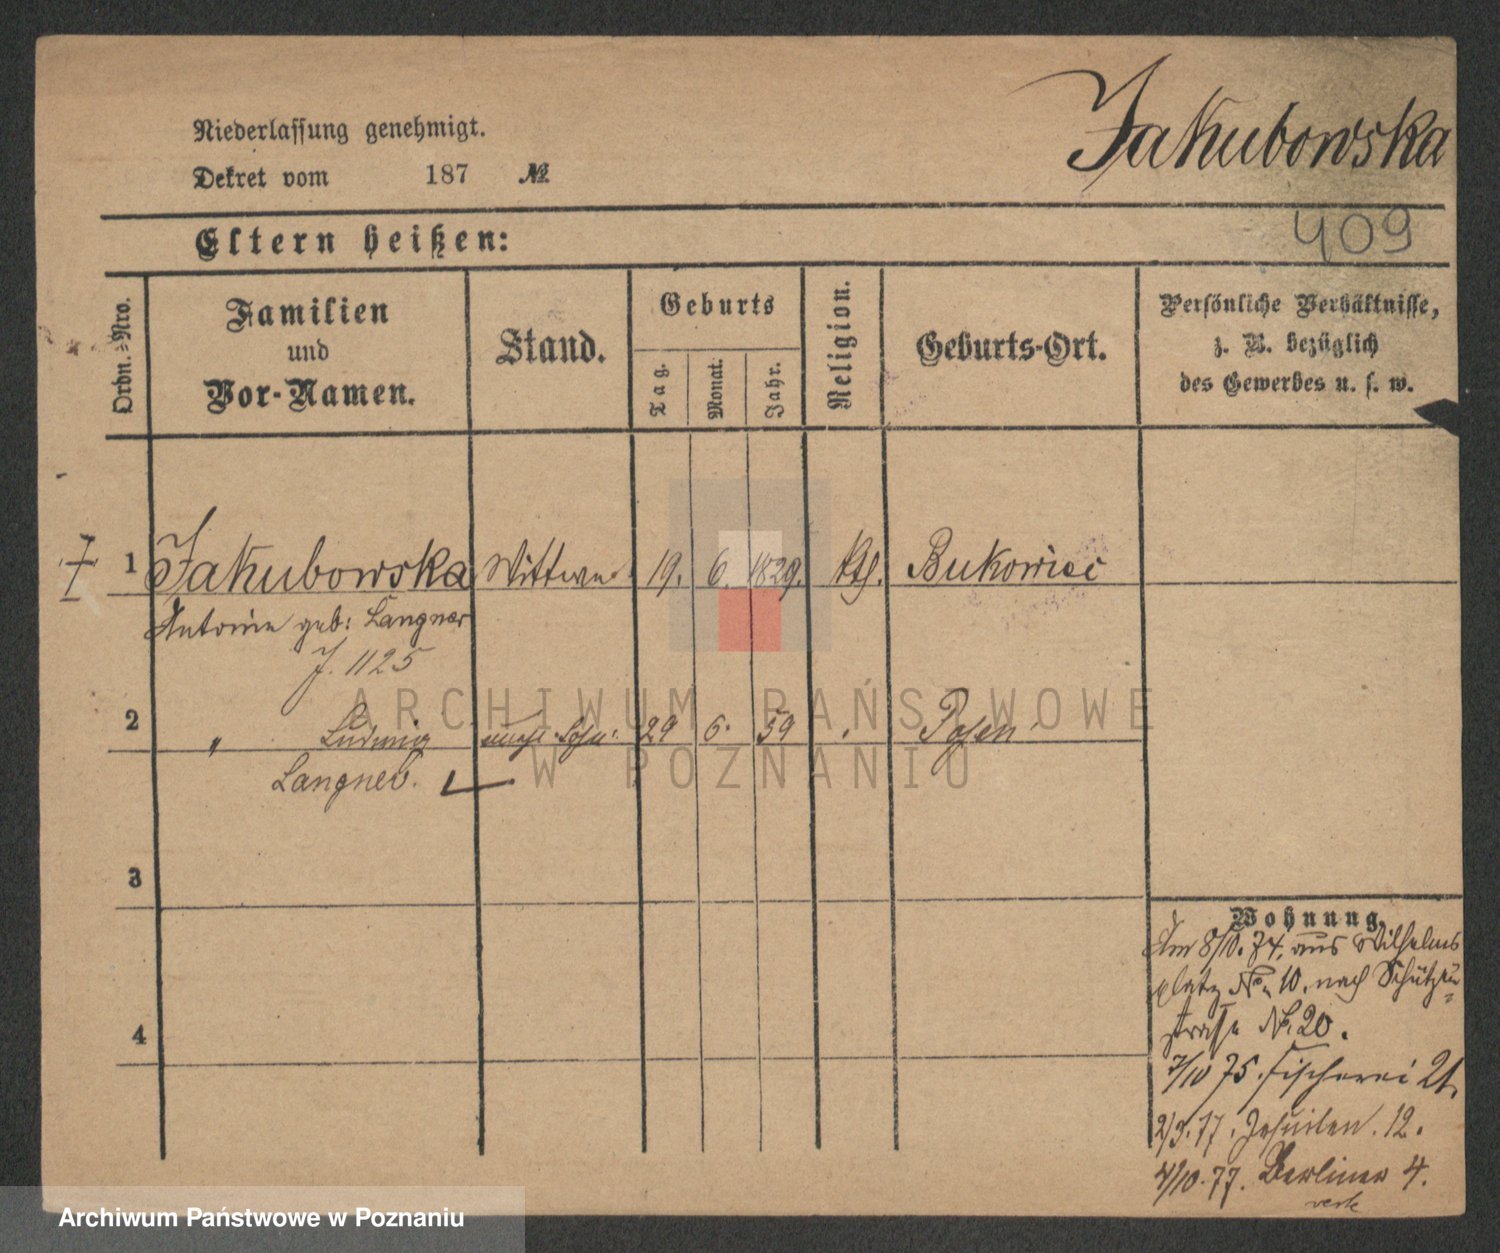 Jakubowska
Niederlassung genehmigt.
Dekret vom 187 №
409
Eltern heißen:
Ordn.-Nro.
Familien
und
Vor-Namen.
Stand.
Geburts
Tag.
Monat.
Jahr.
Religion.
Geburts-Ort.
Persönliche Verhältnisse,
z. B. bezüglich
des Gewerbes u. s. w.
1 Jakubowska Wittwe 19. 6. 1829. Kth. Bukowiec
Antonie geb: Langner
J. 1125
2 " Ludwig Sohn 29 6. 59 Posen
Langner.
3
4
Wohnung.
Am 8/10. 74. aus Wilhelms
platz No. 10. nach Schützen
straße No. 20.
7/10 75. Fischerei 21.
2/3. 77. Jesuiten. 12.
4/10. 77. Berliner 4.
ARCHIWUM PAŃSTWOWE
W POZNANIU
Archiwum Państwowe w Poznaniu